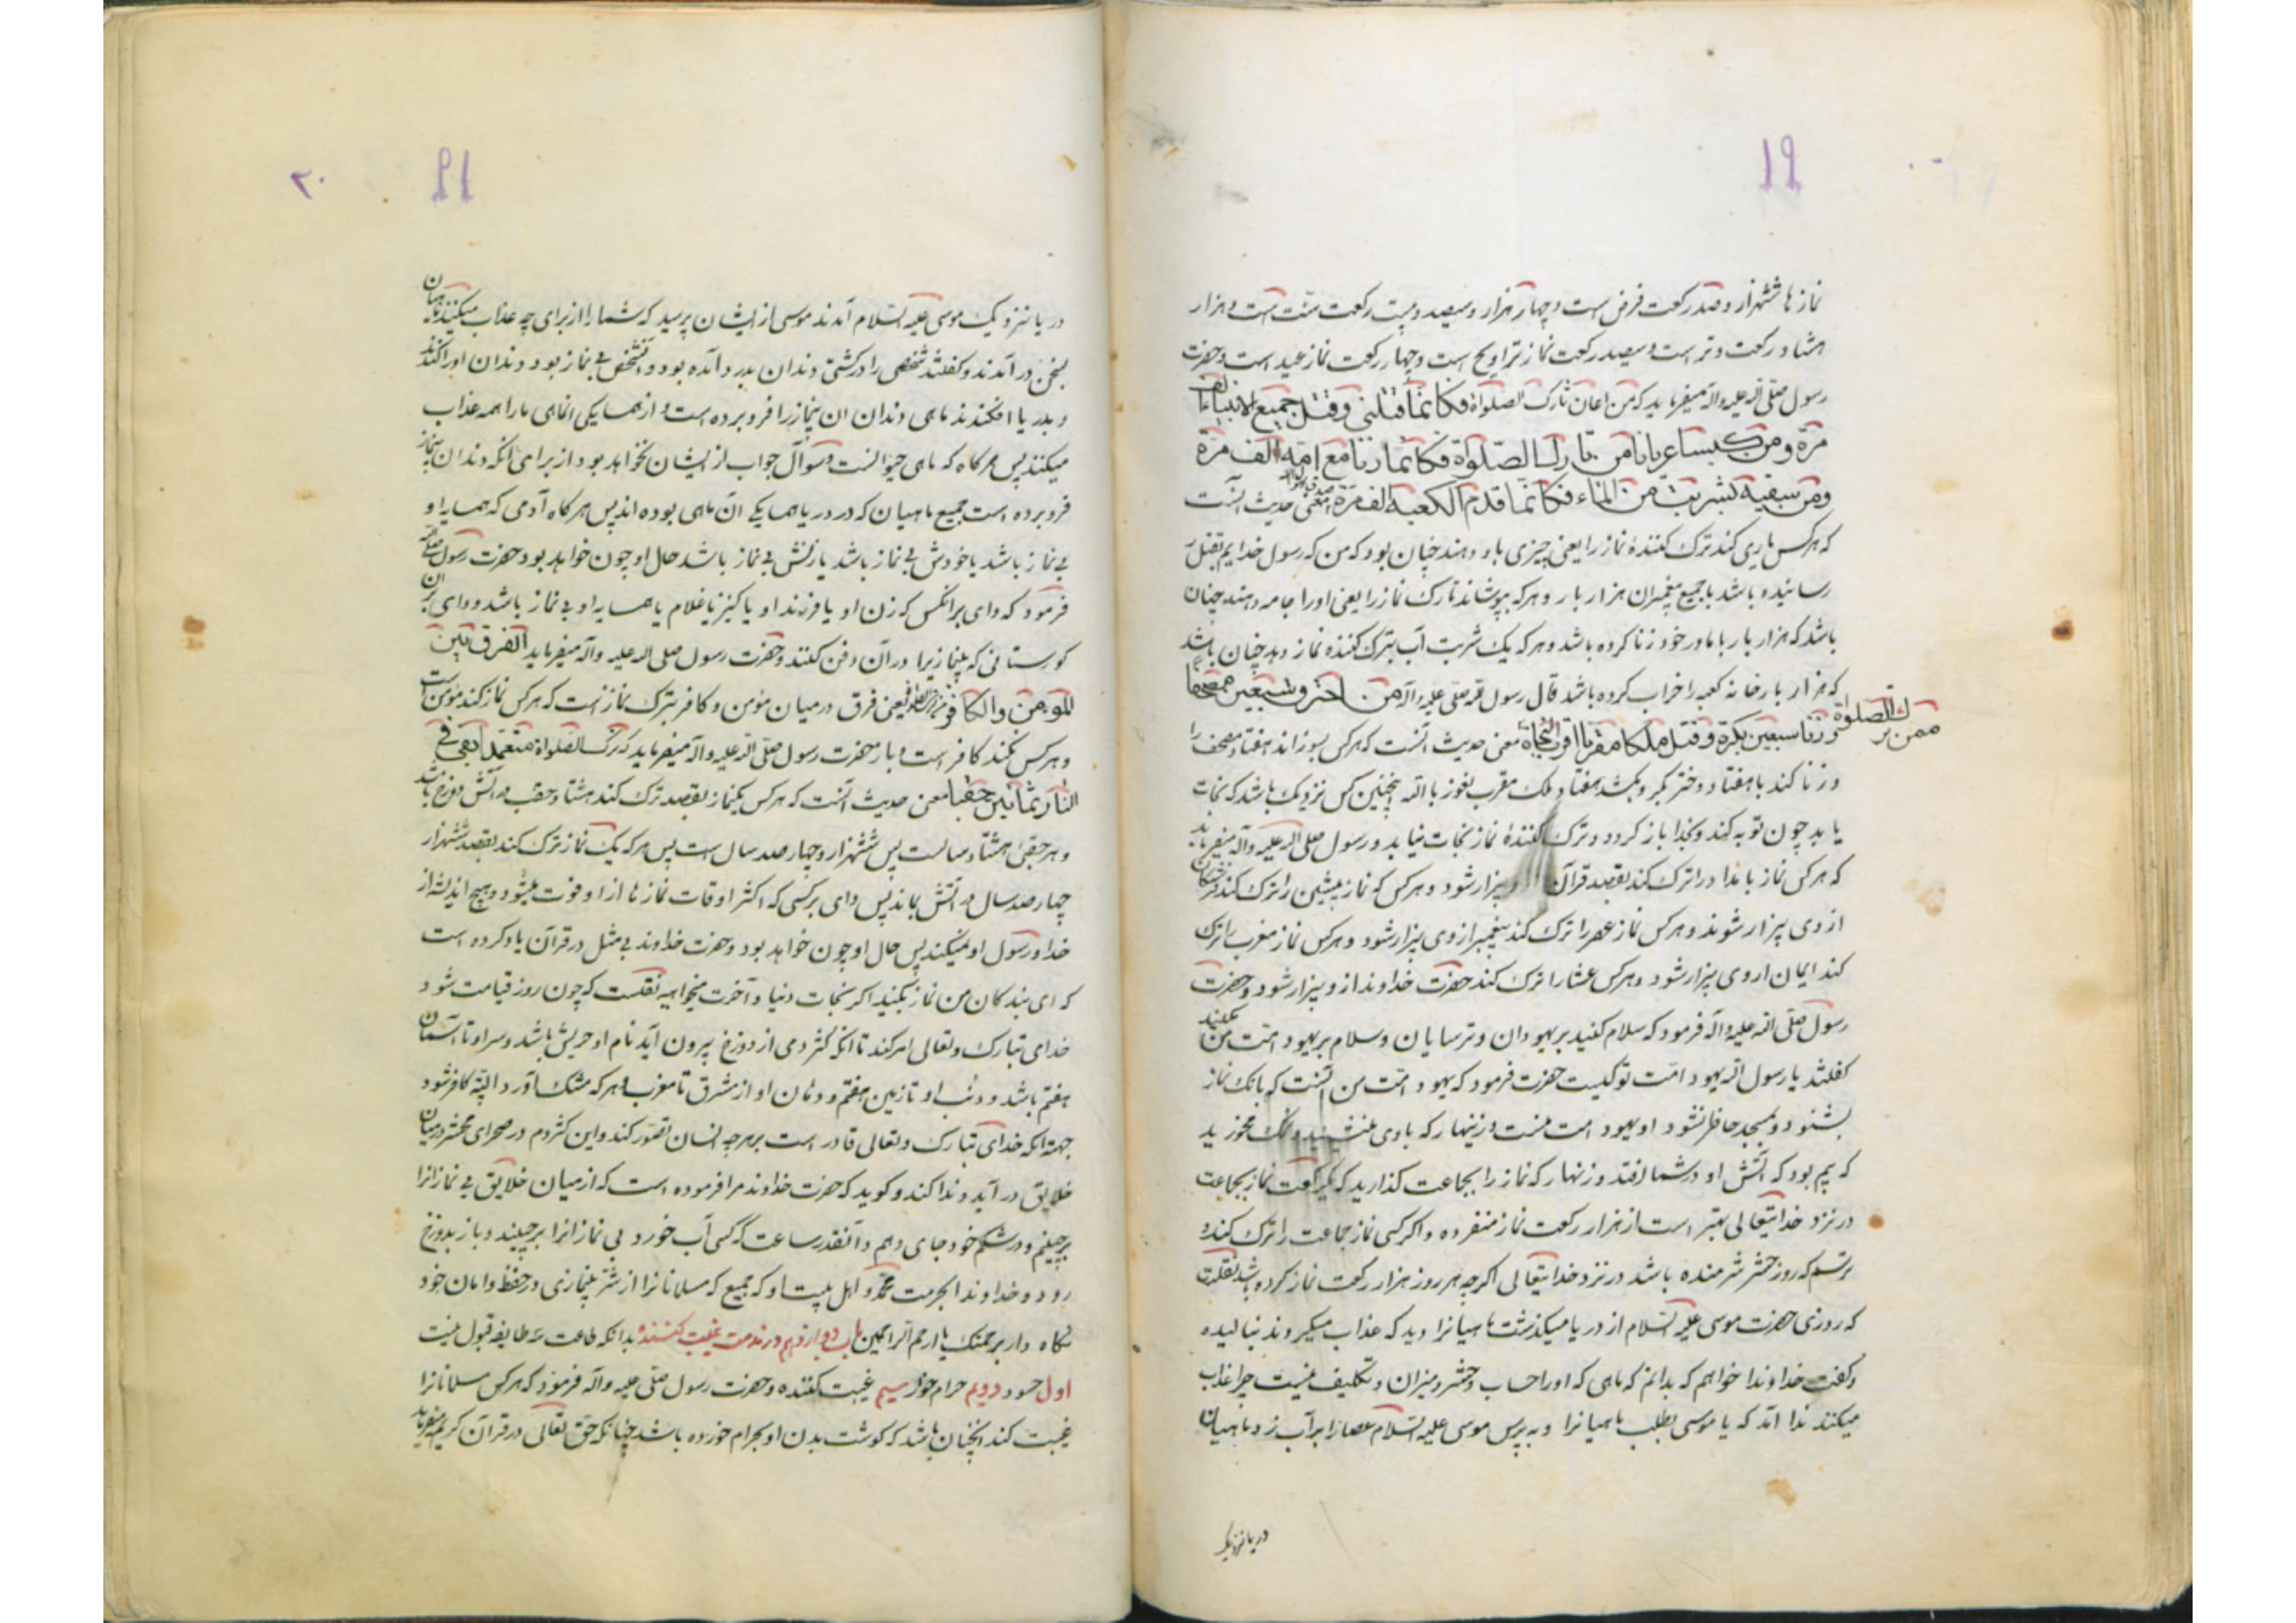 ۱۹
نمازها ششهزار و صد رکعت فرض است و چهار هزار و سیصد و بیست رکعت سنت است و هزار
هشتاد رکعت وتر است و سیصد رکعت نماز تراویح است و چهار رکعت نماز عید است و حضرت
رسول صلی الله علیه و آله میفرماید که من اعان تارک الصلواة فکانما قتلنی و قتل جمیع الانبیاء الف
مرة و من کیسا عریانا من تارک الصلوة فکانما زنا مع امه الف مرة
و من سقیه بشربت من الماء فکانما قدم الکعبه الف مرة معنی حدیث آنست
که هرکس یاری کند ترک کنندۀ نماز را یعنی چیزی باو دهند چنان بود که من که رسول خدایم بقتل
رسانیده باشد با جمیع پیغمبران هزار بار و هرکه بپوشاند تارک نماز را یعنی او را جامه دهند چنان
باشد که هزار بار با مادر خود زنا کرده باشد و هرکه یک شربت آب بترک کننده نماز دهد چنان باشد
که هزار بار خانه کعبه را خراب کرده باشد قال رسول الله صلی علیه و آله من احترق سبعین مصحفا
و زنا سبعین بکرة و قتل ملکا مقربا اقرب النجاة معنی حدیث آنست که هرکس بسوزاند هفتاد مصحف را
ممن ترک الصلوة
و زنا کند با هفتاد دختر بکر و بکشد هفتاد ملک مقرب نعوذ بالله اینچنین کس نزدیک باشد که نجات
یابد چون توبه کند و بخدا باز گردد و ترک کنندۀ نماز نجات نیابد و رسول صلی الله علیه و آله میفرماید
که هرکس نماز بامداد را ترک کند بقصد قرآن از وی بیزار شود و هرکس که نماز پیشین را ترک کند
از وی بیزار شوند و هرکس نماز عصر را ترک کند پیغمبر از وی بیزار شود و هرکس نماز مغرب را ترک
کند ایمان از وی بیزار شود و هرکس عشا را ترک کند حضرت خداوند از و بیزار شود و حضرت
رسول صلی الله علیه و آله فرمود که سلام کنید بر یهودان و ترسایان و سلام بر یهود امت من مکنید
گفتند یا رسول الله یهود امت تو کیست حضرت فرمود که یهود امت من آنست که بانگ نماز
بشنود و بمسجد حاضر نشود او یهود امت منست و زینهار که با وی منشینید و نمک مخورید
که بیم بود که آتش او در شما افتد و زنهار که نماز را بجماعت گذارید که یکرکعت نماز بجماعت
در نزد خدایتعالی بهتر است از هزار رکعت نماز منفرده و اگر کسی نماز جماعت را ترک کند و
برسم که روز حشر شرمنده باشد در نزد خدایتعالی اگرچه هر روز هزار رکعت نماز کرده باشد نقلست
که روزی حضرت موسی علیه السلام از دریا میگذشت ماهیانرا دید که عذاب میکردند بنالیده
و گفت خداوندا خواهم که بدانم که ماهی که او را حساب و حشر و میزان و تکلیف نیست چرا عذاب
میکنند ندا آمد که یا موسی بطلب ماهیانرا و بپرس موسی علیه السلام عصا را بر آب زد ماهیان
دریا نزدیک
۲۰
۱۹
دریا نزدیک موسی علیه السلام آمدند موسی از ایشان پرسید که شما را از برای چه عذاب میکنند ماهیان
بسخن در آمدند و گفتند شخصی را در کشتی دندان بدرد آمده بود و آنشخص بی نماز بود دندان او را کندند
و بدریا افکندند ماهی دندان ان بینماز را فرو برده است و از همسایکی انماهی ما را همه عذاب
میکنند پس هرگاه که ماهی حیوانست و سوآل جواب از ایشان نخواهد بود از برا می آنکه دندان بینماز
فرو برده است جمیع ماهیان که در دریا همسایکی ان ماهی بوده اند پس هرگاه آدمی که همسایه او
بی نماز باشد یا خودش بی نماز باشد یا زنش بی نماز باشد حال او چون خواهد بود حضرت رسول صلعم
فرمود که وای بر انکس که زن او یا فرزند او یا کنیز یا غلام یا همسایه او بی نماز باشد و وای بر ان
گورستانی که بینمازیرا در آن دفن کنند و حضرت رسول صلی الله علیه و آله میفرماید الفرق بین
المؤمن و الکافر ترک الصلوة یعنی فرق در میان مؤمن و کافر بترک نماز است که هرکس نماز کند مؤمن است
و هرکس نکند کافر است و باز حضرت رسول صلی الله علیه و آله میفرماید که ترک الصلواة متعمدا بقی فی
النار ثمانین حقبا معنی حدیث آنست که هرکس یکنماز بقصد ترک کند هشتاد حقب در آتش دوزخ باشد
و هر حقبی هشتاد سالست پس ششهزار و چهار صد سال است پس هرکه یک نماز ترک کند بقصد ششهزار
چهار صد سال در آتش بماند پس وای بر کسی که اکثر اوقات نمازها از او فوت میشود و هیچ اندیشه از
خدا و رسول او نمیکند پس حال او چون خواهد بود و حضرت خداوند بی مثل در قرآن یاد کرده است
که ای بندکان من نماز بکنید اگر نجات دنیا و آخرت میخواهید نقلست که چون روز قیامت شود
خدای تبارک و تعالی امر کند تا آنکه کژدمی از دوزخ بیرون آید نام او حریش باشد و سر او تا آسمان
هفتم باشد و دنب او تا زمین هفتم و دهان او از مشرق تا مغرب و هرکه شک آورد البته کافر شود
جهة آنکه خدای تبارک و تعالی قادر است بر هرچه انسان تصور کند و این کژدم در صحرای محشر در میان
خلایق در آید و ندا کند و گوید که حضرت خداوند مرا فرموده است که از میان خلایق بی نمازانرا
برچینم و در شکم خود جای دهم و آنقدر ساعت که کسی آب خورد بی نمازانرا برچیند و باز بدوزخ
رود و خداوندا بحرمت محمد و اهل بیت او که جمیع که مسلمانانرا از شر بینمازی در حفظ و امان خود
نگاه دار برحمتک یا ارحم الراحمین باب دوازدهم در مذمت غیبت کننده بدانکه طاعت سه طایفه قبول نیست
اول حسود دویم حرام خوار سیم غیبت کننده و حضرت رسول صلی علیه و آله فرمود که هرکس مسلمانرا
غیبت کند آنچنان باشد که گوشت بدن او بحرام خورده باشد چنانکه حق تعالی در قرآن کریم میفرماید